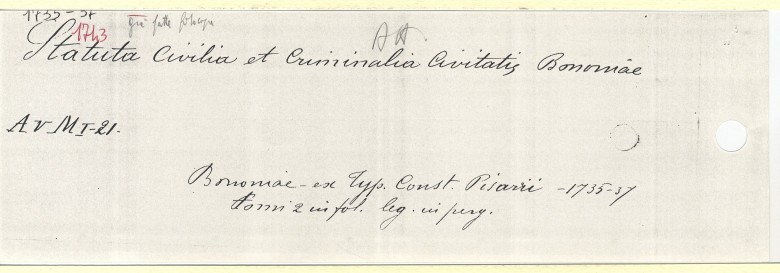 1735-37
1743 già fatte fotocopie
AA
Statuta Civilia et Criminalia Civitatis Bononiae
A V M I-21.
Bononiae - ex Typ. Const. Pisarri - 1735-37
tomi 2 in fol. leg. in perg.